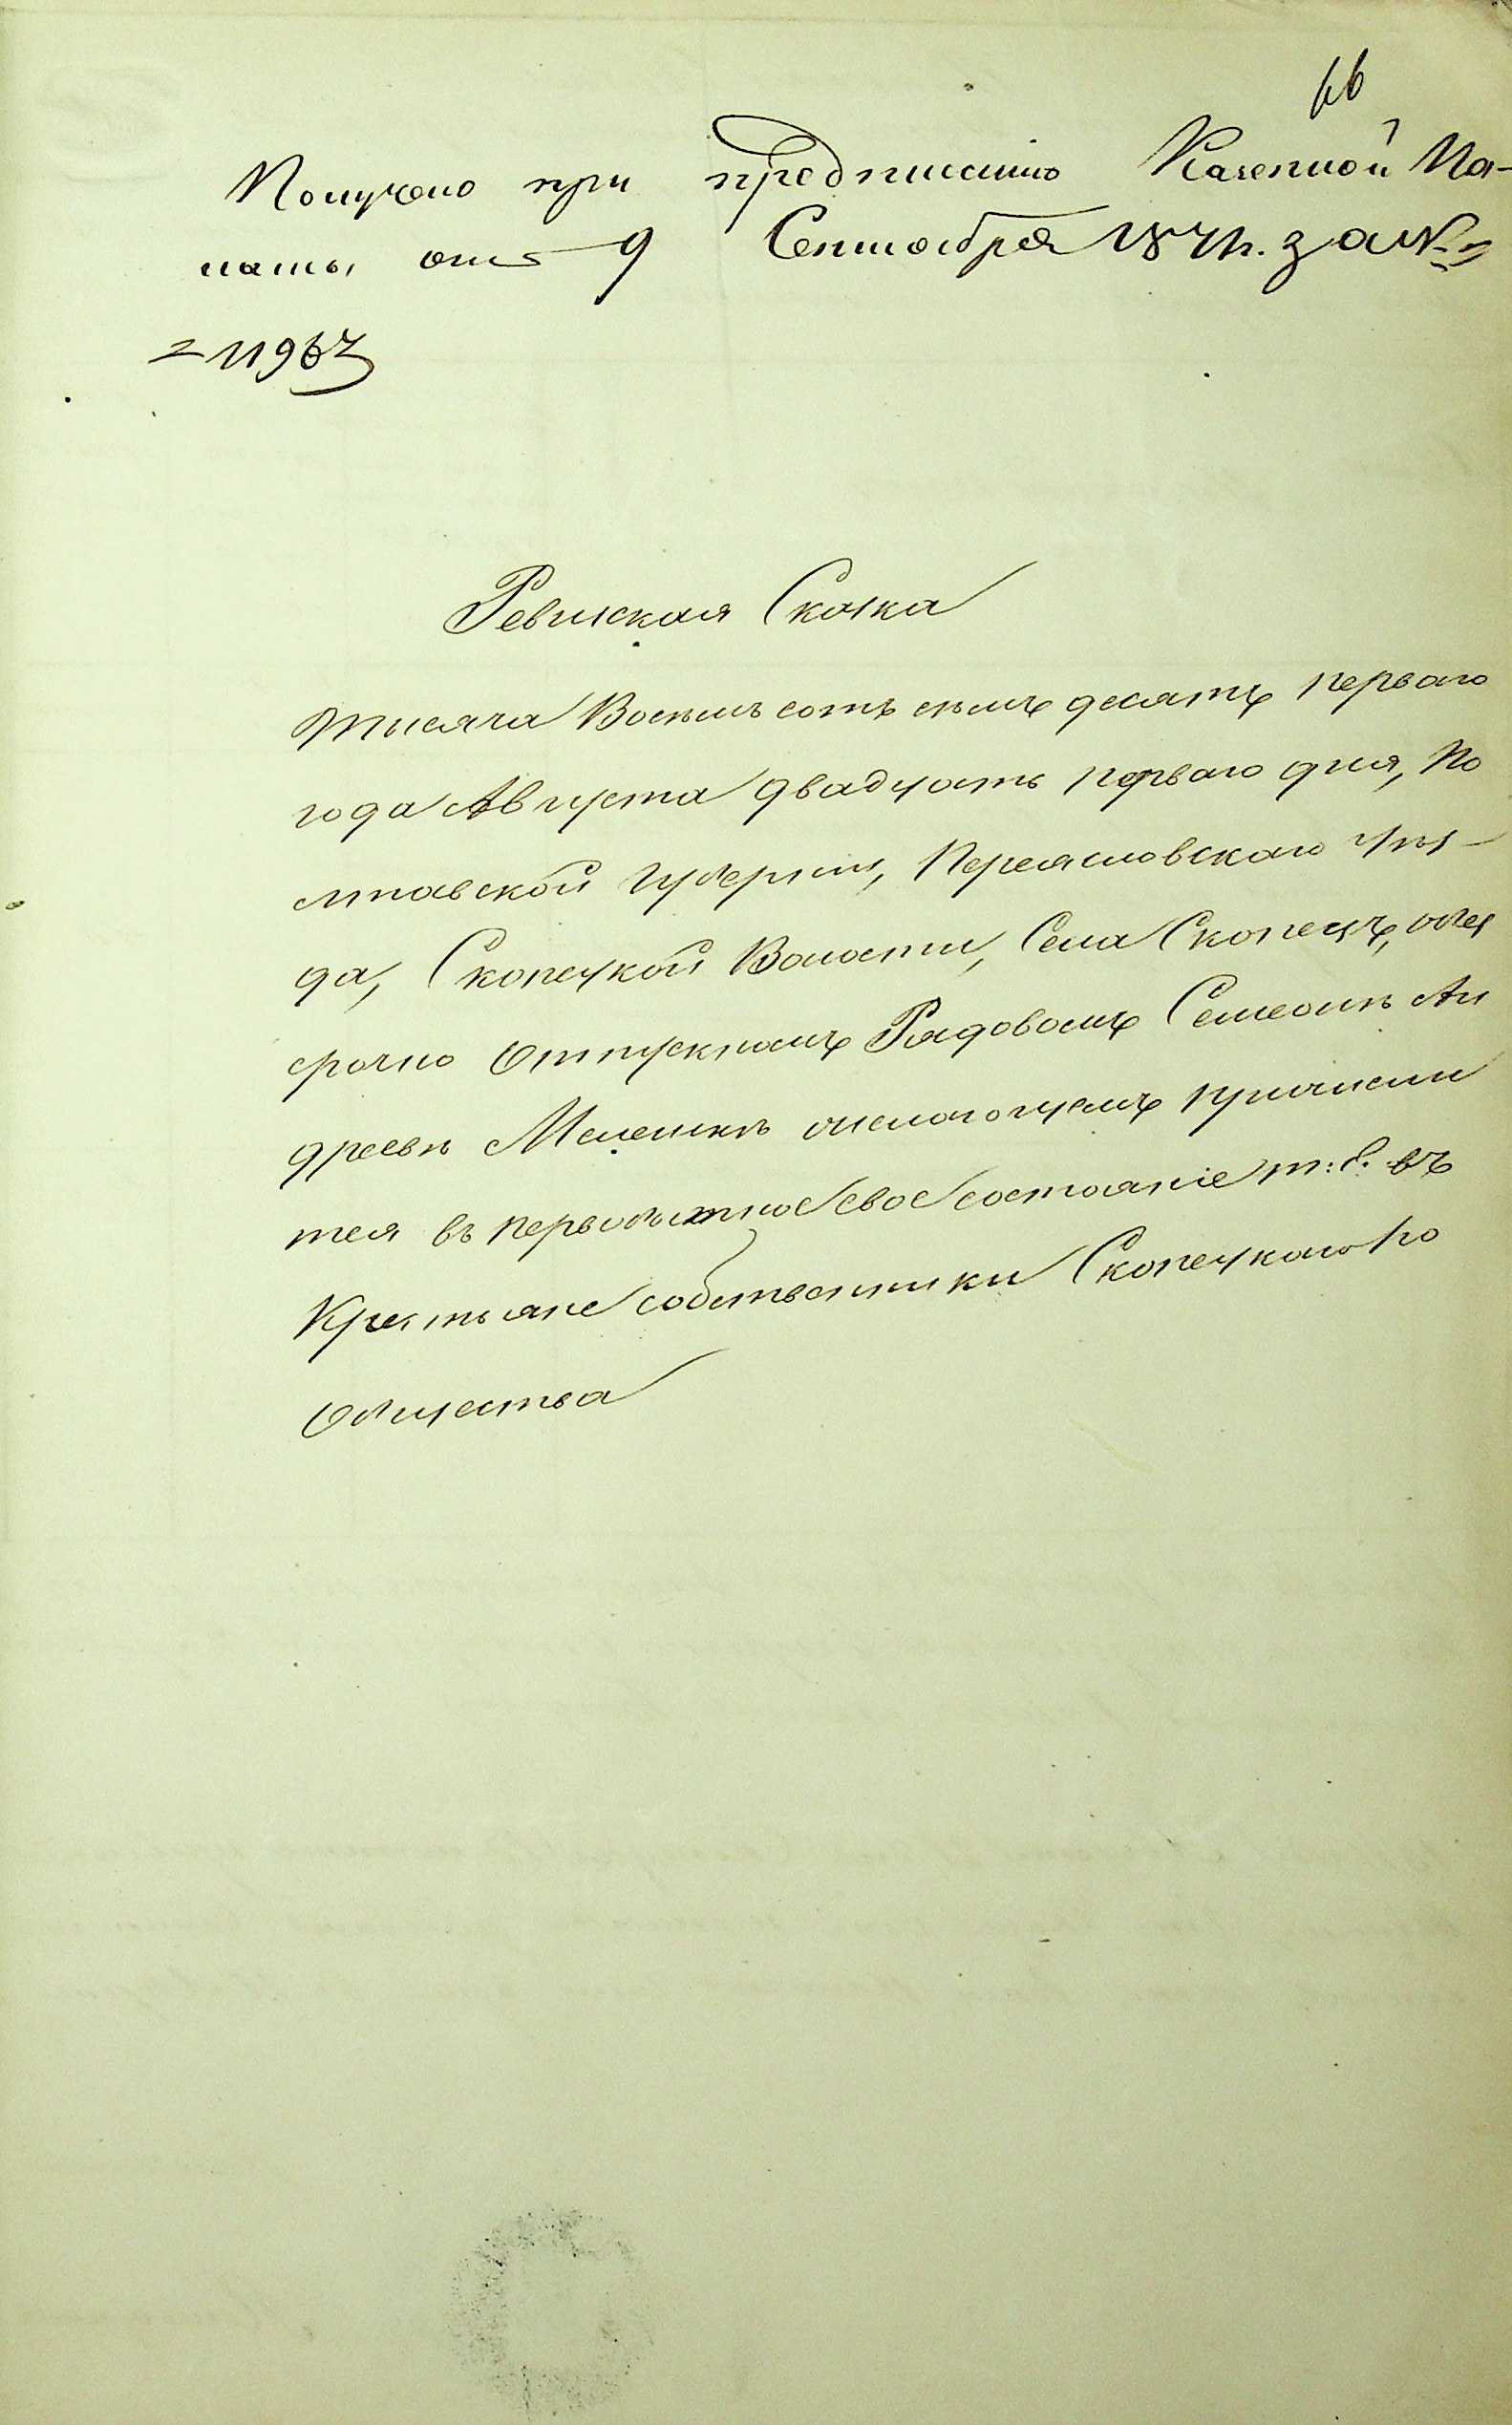 66
Получено при предписанию Казенной Па-
латы отъ 9 Сентября 1871г. за №
= 11967
Ревизская Сказка
тысяча Восемь сотъ семъ десятъ перваго
года Августа двадцать перваго дня, По
лтавской Губерніи, Переясловскаго уѣз-
да, Скопецкой Волости, Села Скопецъ, о без
срочно Отпускномъ Рядовомъ Семеонѣ Ан
дреевѣ Мелешкѣ желающемъ причисли
тся въ первобытное свое состояніе т: е. въ
Крестьяне собственники Скопецкаго по
Общества